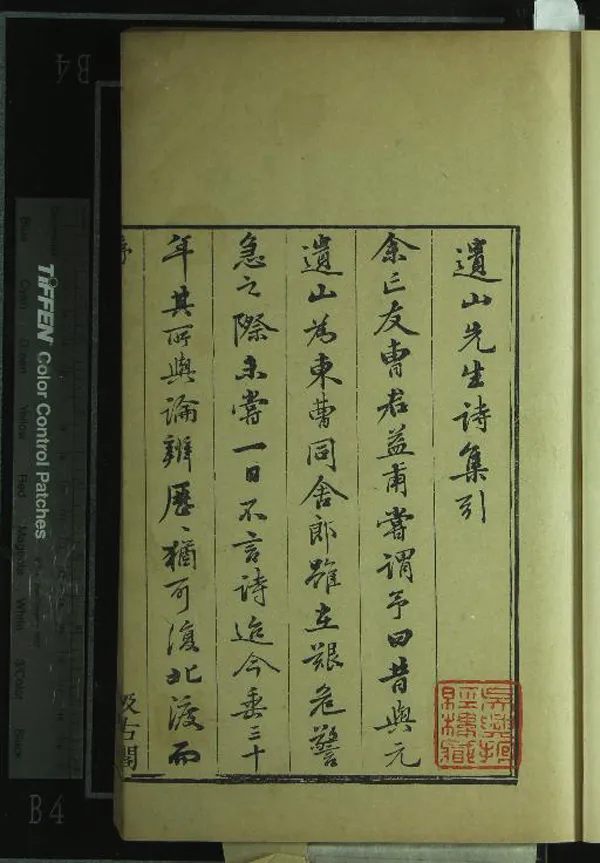 遺山先生詩集引
余亡友曹君益甫嘗謂予曰昔與元
遺山為東曹同舍郎雖在艱危警
急之際未嘗一日不言詩迨今垂三十
年其所與論辨歷〻猶可復北渡而
序
汲古閣
B4
B4
TIFFEN Color Control Patches
Blue
Cyan
Green
Yellow
Red
Magenta
White
3/Color
Black